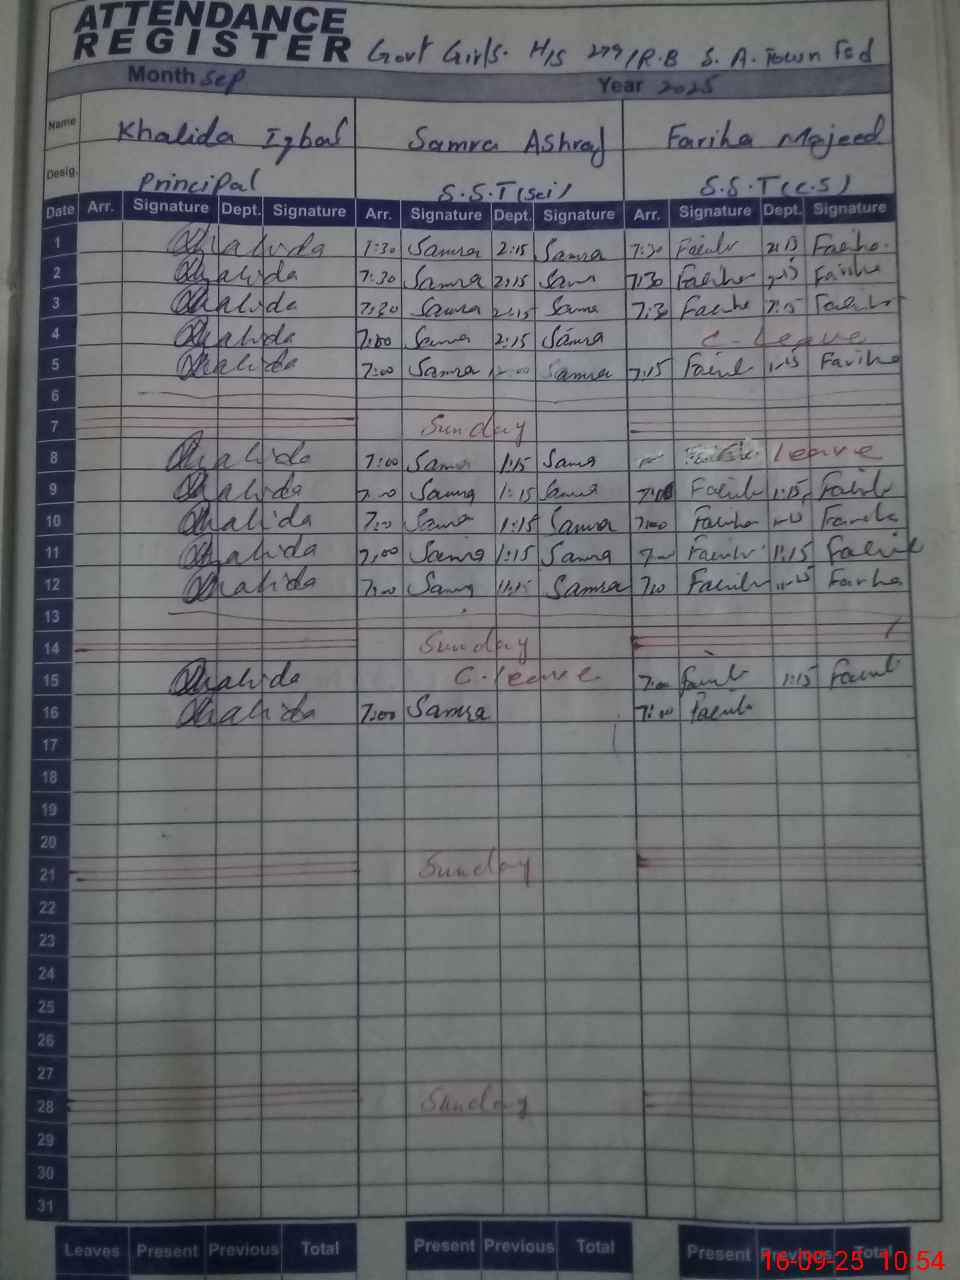 ATTENDANCE
REGISTER Govt Girls. H/S 279/R.B S. A. Town Fsd
Month Sep Year 2025
Name Khalida Iqbal Samra Ashraf Fariha Majeed
Desig. Principal S.S.T(Sci) S.S.T(C.S)
Date Arr. Signature Dept. Signature Arr. Signature Dept. Signature Arr. Signature Dept. Signature
1 Khalida 7:30 Samra 2:15 Samra 7:30 Fariha 2:15 Fariha
2 Khalida 7:30 Samra 2:15 Sam 7:30 Fariha Fariha
3 Khalida 7:30 Samra 2:15 Sama 7:30 Fariha Fariha
4 Khalida 7:00 Samra 2:15 Samra C-Leave
5 Khalida 7:00 Samra Samra 7:15 Fariha 1:15 Fariha
6
7 Sunday
8 Khalida 7:00 Samra 1:15 Sama leave
9 Khalida 7:00 Samra 1:15 Samra Fariha 1:15 Fariha
10 Khalida 7:00 Samra 1:15 Samra 7:00 Fariha Fariha
11 Khalida 7:00 Samra 1:15 Samra 7:00 Fariha 1:15 Fariha
12 Khalida 7:00 Samra 1:15 Samra 7:00 Fariha Fariha
13
14 Sunday
15 Khalida C.leave 7:00 Fariha 1:15 Fariha
16 Khalida 7:00 Samra 7:00 Fariha
17
18
19
20
21 Sunday
22
23
24
25
26
27
28 Sunday
29
30
31
Leaves Present Previous Total Present Previous Total Present Previous Total
16-09-25 10.54